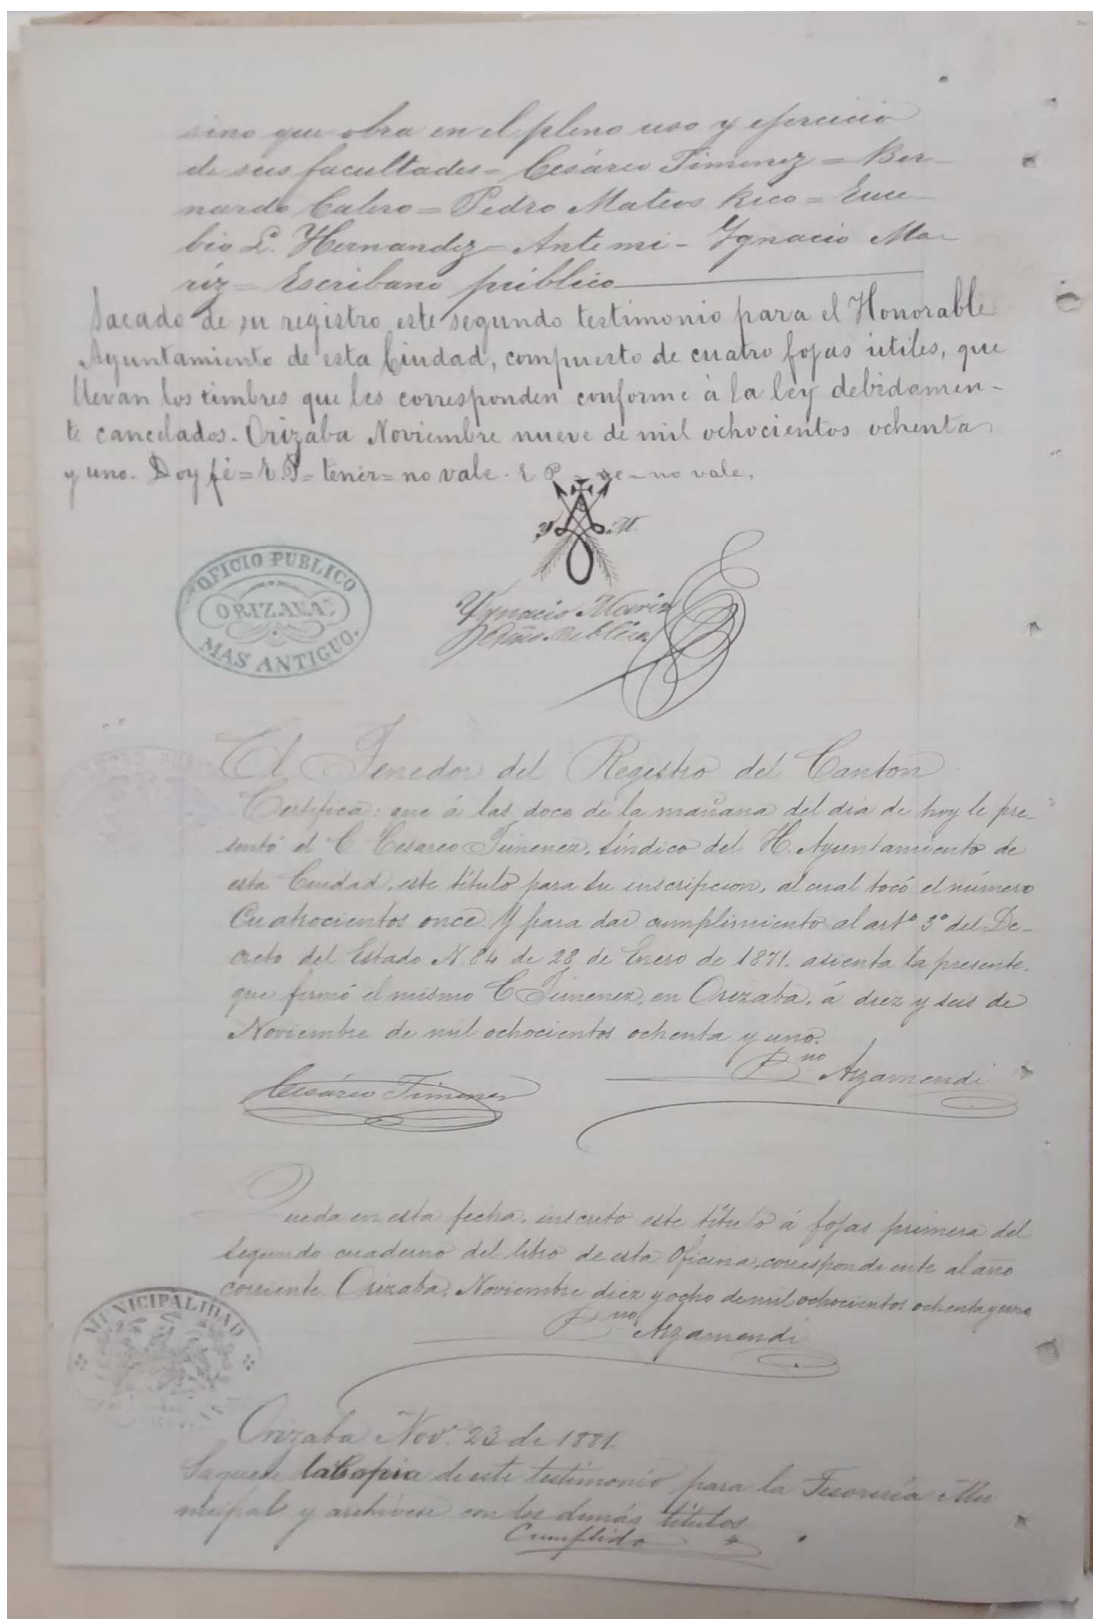 sino que obra en el pleno uso y ejercicio
de sus facultades = Cesáreo Jimenez = Ber-
nardo Calero = Pedro Mateos Rico = Euce-
bio L. Hernandez = Ante mi - Ygnacio Ma-
riz = Escribano público
Sacado de su registro este segundo testimonio para el Honorable
Ayuntamiento de esta Ciudad, compuesto de cuatro fojas utiles, que
llevan los timbres que les corresponden conforme á la ley debidamen-
te cancelados. Orizaba Noviembre nueve de mil ochocientos ochenta
y uno. Doy fé = E P = tener = no vale. E P - ye - no vale.
Y M.
OFICIO PUBLICO
ORIZAVA.
MAS ANTIGUO.
Ygnacio Mariz
Público
El Tenedor del Registro del Canton
Certifica: que á las doce de la mañana del dia de hoy le pre-
sentó el C. Cesareo Jimenez, Síndico del H. Ayuntamiento de
esta Ciudad, este título para su inscripcion, al cual tocó el número
Cuatrocientos once. Y para dar cumplimiento al artº 3º del De-
creto del Estado N. 84 de 28 de Enero de 1871. asienta la presente,
que firmó el mismo C. Jimenez, en Orizaba, á diez y seis de
Noviembre de mil ochocientos ochenta y uno.
Cesáreo Jimenez
Azamendi
Queda en esta fecha, inscrito este título á fojas primera del
segundo cuaderno del libro de esta Oficina, correspondiente al año
corriente. Orizaba, Noviembre diez y ocho de mil ochocientos ochenta y uno
Azamendi
MUNICIPALIDAD
Orizaba Nov. 23 de 1881.
Saquese la Copia de este testimonio para la Tesorería Mu
nicipal y archívese con los demás títulos
Cumplido